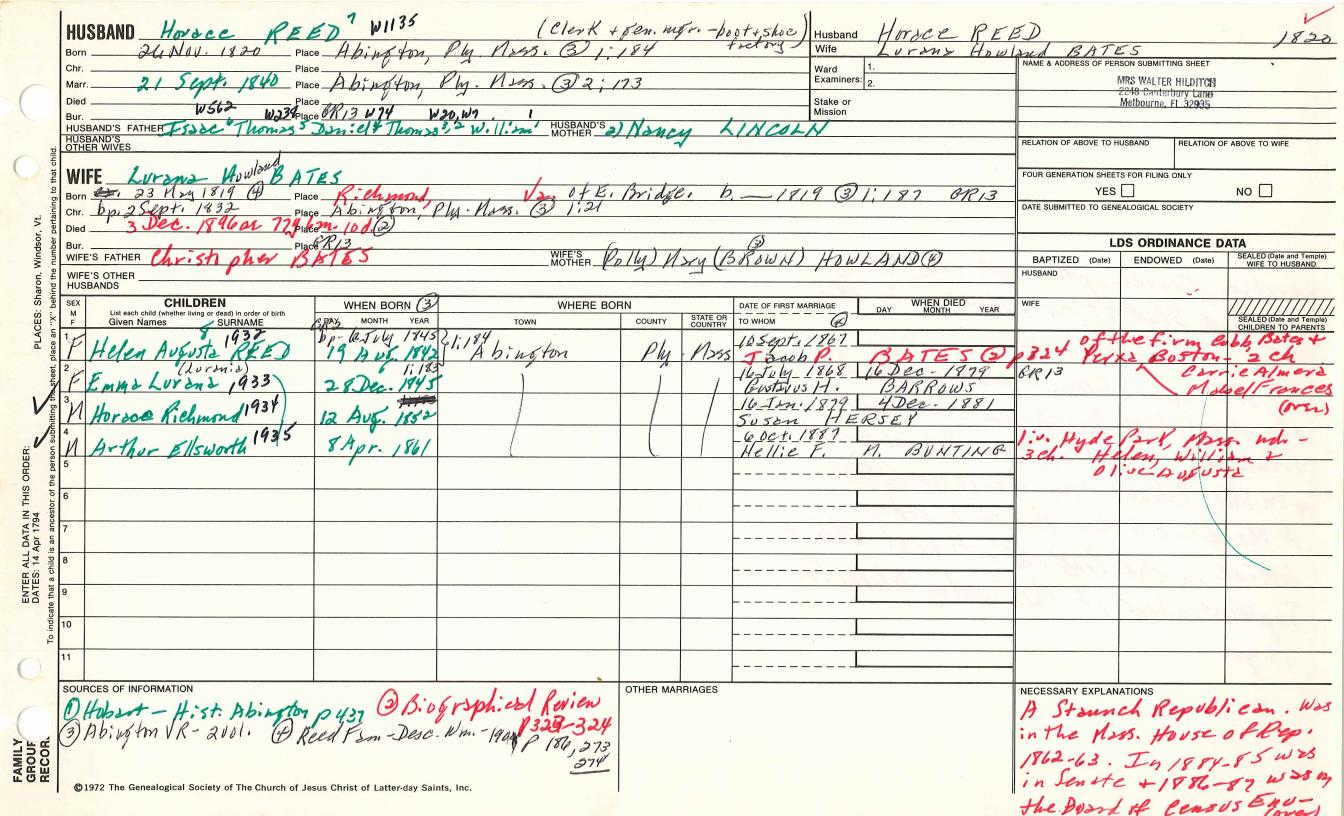 HUSBAND Horace REED 7 W1135 (Clerk + gen. mgr. - boot + shoe factory)
Born 26 Nov. 1820 Place Abington, Ply. Mass. (3) 1:184
Chr. Place
Marr. 21 Sept. 1840 Place Abington, Ply. Mass. (3) 2:173
Died Place
W562 W239 W74 W20, W9 1
Bur. Place GR13
HUSBAND'S FATHER Isaac 6 Thomas 5 Daniel 4 Thomas 3,2 William 1 HUSBAND'S MOTHER 2) Nancy LINCOLN
HUSBAND'S OTHER WIVES
Husband Horace REED 1820
Wife Lurana Howland BATES
Ward Examiners: 1.
2.
Stake or Mission
NAME & ADDRESS OF PERSON SUBMITTING SHEET
MRS WALTER HILDITCH
2248 Canterbury Lane
Melbourne, FL 32935
RELATION OF ABOVE TO HUSBAND RELATION OF ABOVE TO WIFE
FOUR GENERATION SHEETS FOR FILING ONLY
YES NO
DATE SUBMITTED TO GENEALOGICAL SOCIETY
WIFE Lurana Howland BATES
Born 23 May 1819 (4) Place Richmond, Va. of E. Bridge. b. — 1819 (3) 1:187 GR13
Chr. bp. 2 Sept. 1832 Place Abington, Ply. Mass. (3) 1:21
Died 3 Dec. 1896 or 77y 6m 10d (2) Place
Bur. Place GR13
WIFE'S FATHER Christopher BATES WIFE'S MOTHER (Polly) Mary (BROWN) (3) HOWLAND (4)
WIFE'S OTHER HUSBANDS
LDS ORDINANCE DATA
BAPTIZED (Date) ENDOWED (Date) SEALED (Date and Temple) WIFE TO HUSBAND
HUSBAND
WIFE
SEALED (Date and Temple) CHILDREN TO PARENTS
SEX M F
CHILDREN
List each child (whether living or dead) in order of birth
Given Names SURNAME
WHEN BORN (3)
DAY MONTH YEAR
WHERE BORN
TOWN COUNTY STATE OR COUNTRY
DATE OF FIRST MARRIAGE
TO WHOM (4)
WHEN DIED
DAY MONTH YEAR
1 F Helen Augusta 8 REED 1932 bp. 6 July 1845 1:184 10 Sept. 1867
19 Aug. 1842 Abington Ply. Mass Jacob P. BATES (2) p324 of the firm Cobb, Bates + Yerxa Boston - 2 ch
Carrie Almera
Mabel Frances
(over)
2 F Emma Lurana (Lurania) 1933 1:183 16 July 1868 16 Dec. 1879 GR13
28 Dec. 1845 Gustavus H. BARROWS
3 M Horace Richmond 1934 16 Jan. 1879 4 Dec. 1881
12 Aug. 1852 Susan HERSEY
4 M Arthur Ellsworth 1935 6 Oct. 1887
8 Apr. 1861 Nellie F. M. BUNTING
liv. Hyde Park, Mass. ndi -
3 ch. Helen, William +
Olive Augusta
5
6
7
8
9
10
11
SOURCES OF INFORMATION
(1) Hobart - Hist. Abington p 437 (2) Biographical Review p 323-324
(3) Abington VR - 2 vol. (4) Reed Fam - Desc. Wm. - 1901 p 186, 273
274
OTHER MARRIAGES
NECESSARY EXPLANATIONS
A Staunch Republican. Was
in the Mass. House of Rep.
1862-63. In 1884-85 was
in Senate + 1886-87 was on
the Board of Census Enu-
(over)
©1972 The Genealogical Society of The Church of Jesus Christ of Latter-day Saints, Inc.
PLACES: Sharon, Windsor, Vt.
ENTER ALL DATA IN THIS ORDER:
DATES: 14 Apr 1794
To indicate that a child is an ancestor of the person submitting the sheet, place an "X" behind the number pertaining to that child.
FAMILY GROUP RECOR.